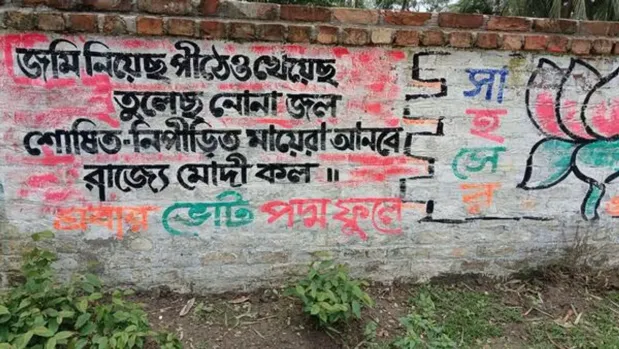 জমি নিয়েছ পীঠেও খেয়েছ
তুলেছ নোনা জল
শোষিত-নিপীড়িত মায়েরা আনবে
রাজ্যে মোদী কল ॥
এবার ভোট পদ্ম ফুলে
সাহসের